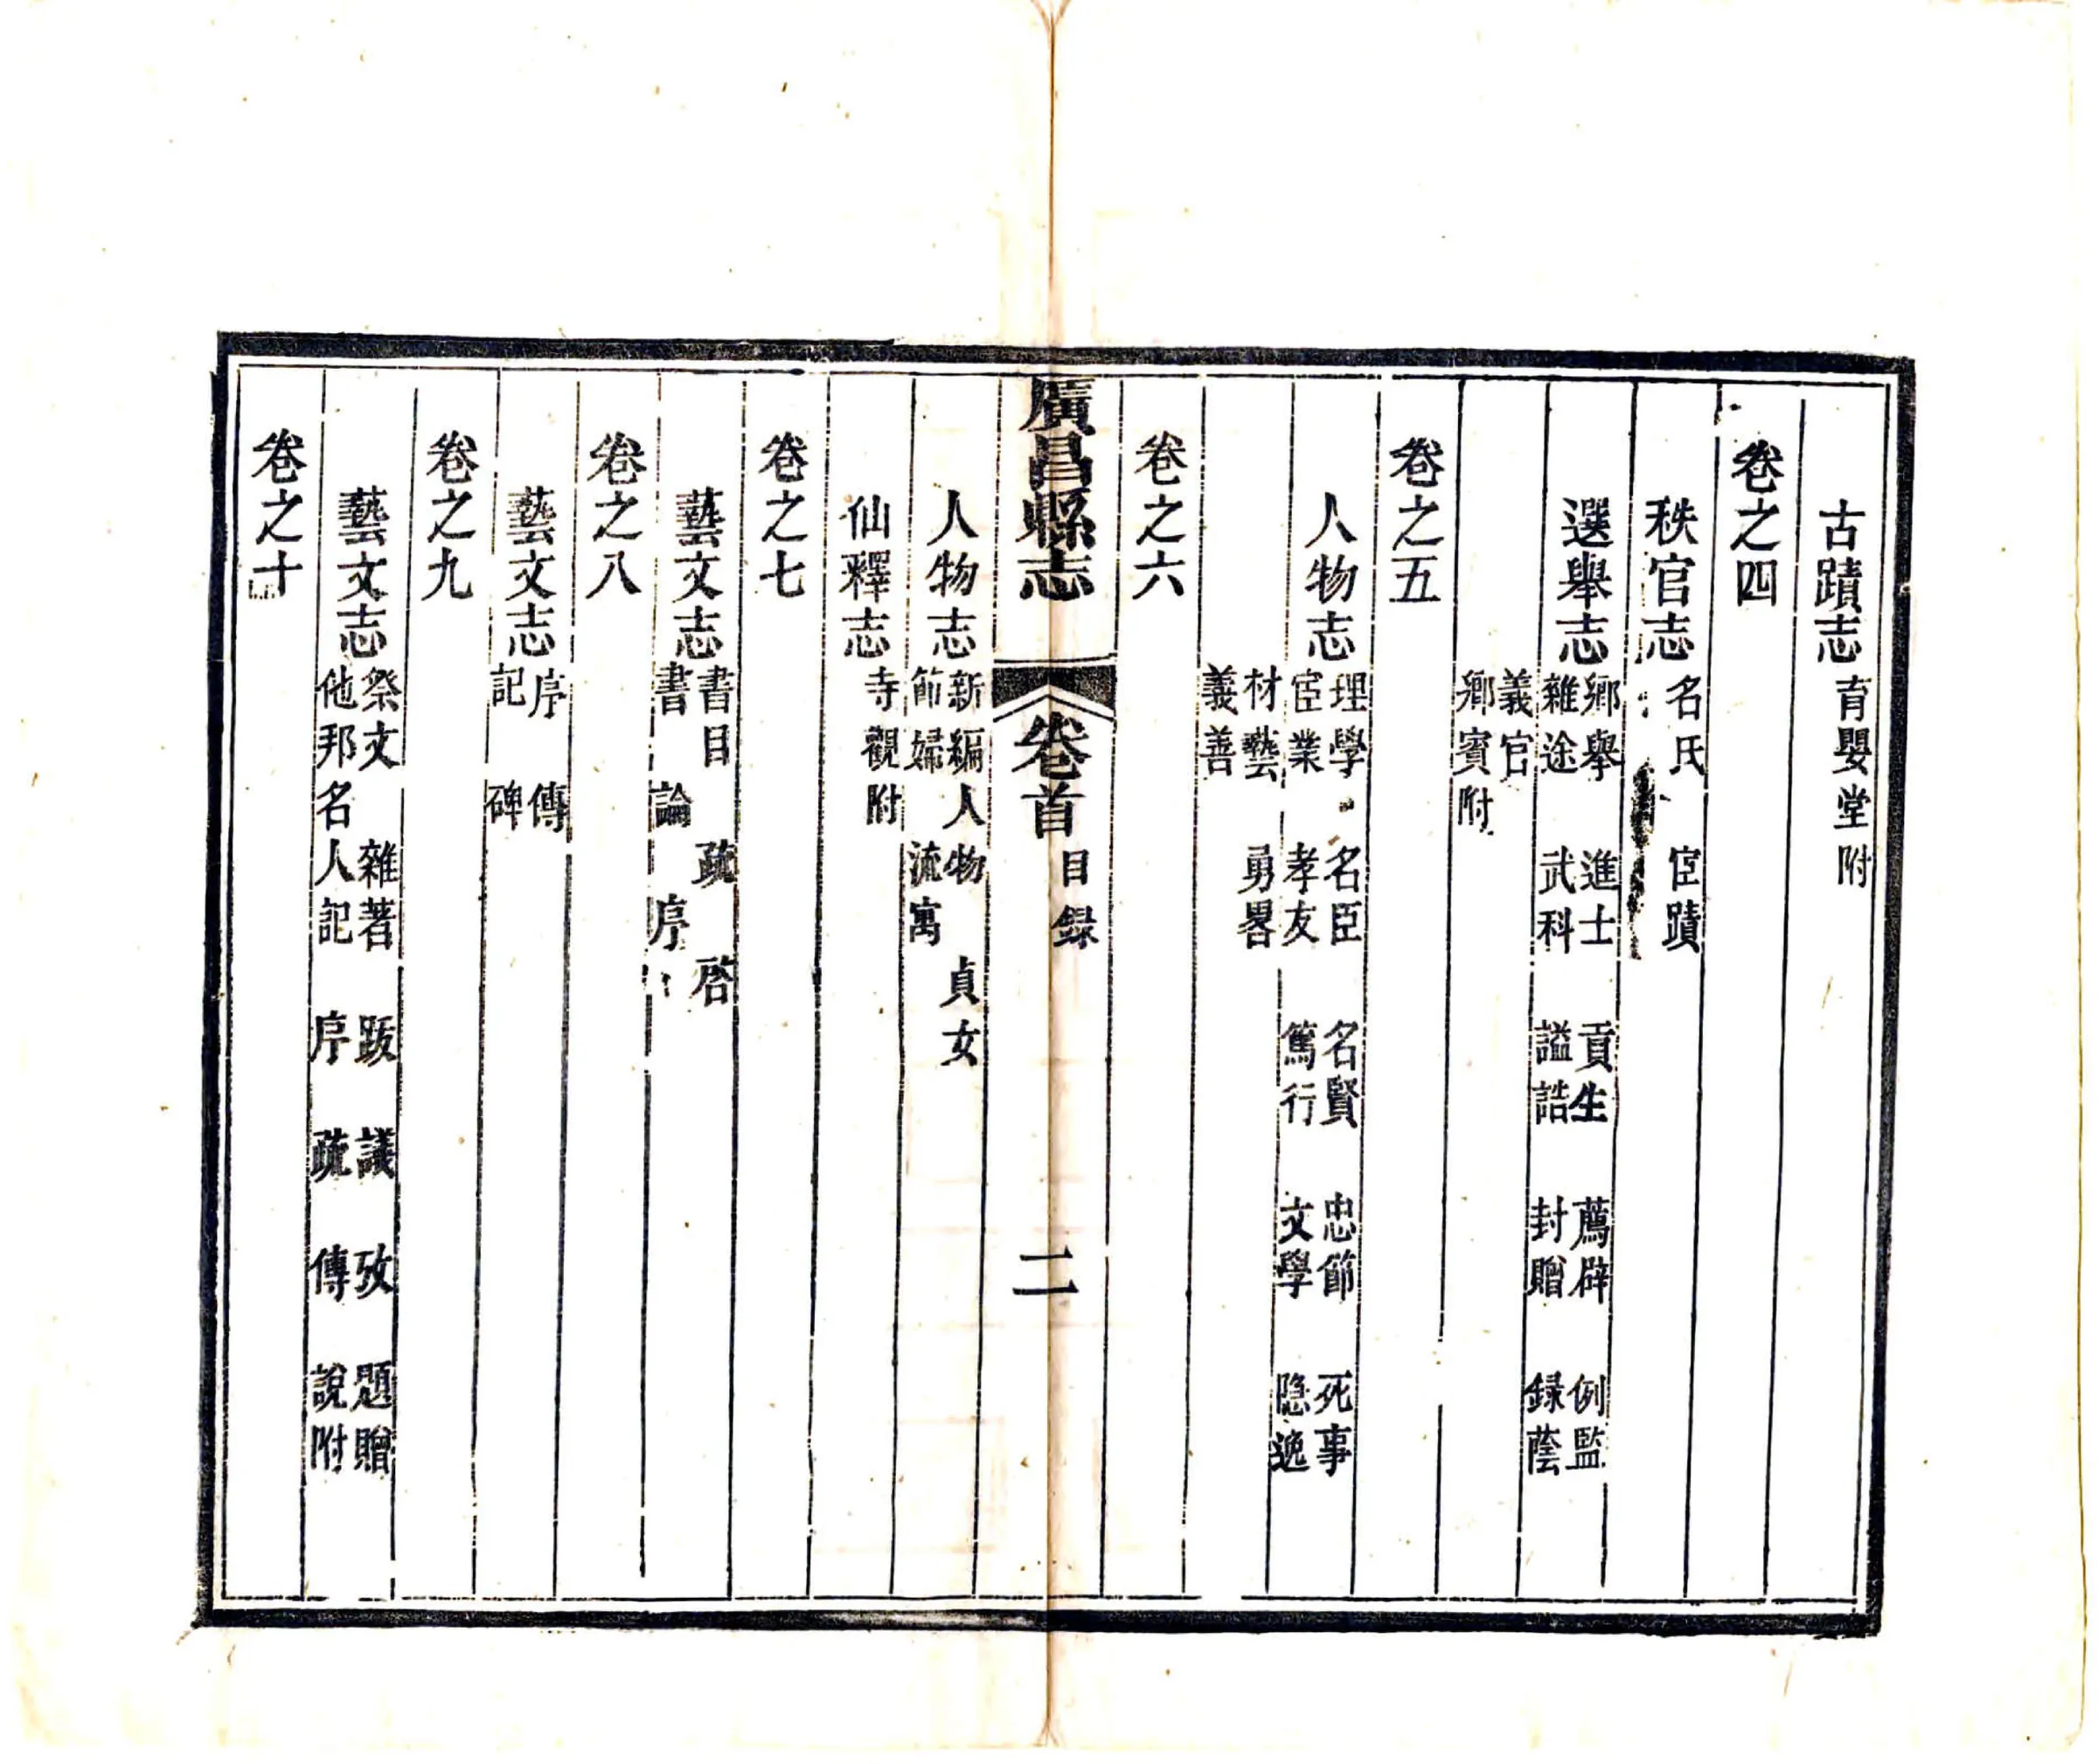 古蹟志 育嬰堂附
卷之四
秩官志 名氏 宦蹟
選舉志 鄉舉 進士 貢生 薦辟 例監
雜途 武科 謚誥 封贈 録蔭
義官
鄉賓附
卷之五
人物志 理學 名臣 名賢 忠節 死事
宦業 孝友 篤行 文學 隐逸
材藝 勇畧
義善
卷之六
廣昌縣志 卷首 目録 二
人物志 新編人物 貞女
節婦 流寓
仙釋志 寺觀附
卷之七
藝文志 書目 疏 啓
書 論 序
卷之八
藝文志 序 傳
記 碑
卷之九
藝文志 祭文 雜著 跋 議 攷 題贈
他邦名人記 序 疏 傳 說附
卷之十